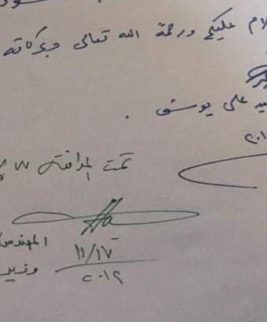 السلام عليكم ورحمة الله تعالى وبركاته
علي يوسف .
٢٠١
تمت الموافقة
المهندس
١١/١٧
٢٠١٩
وزير